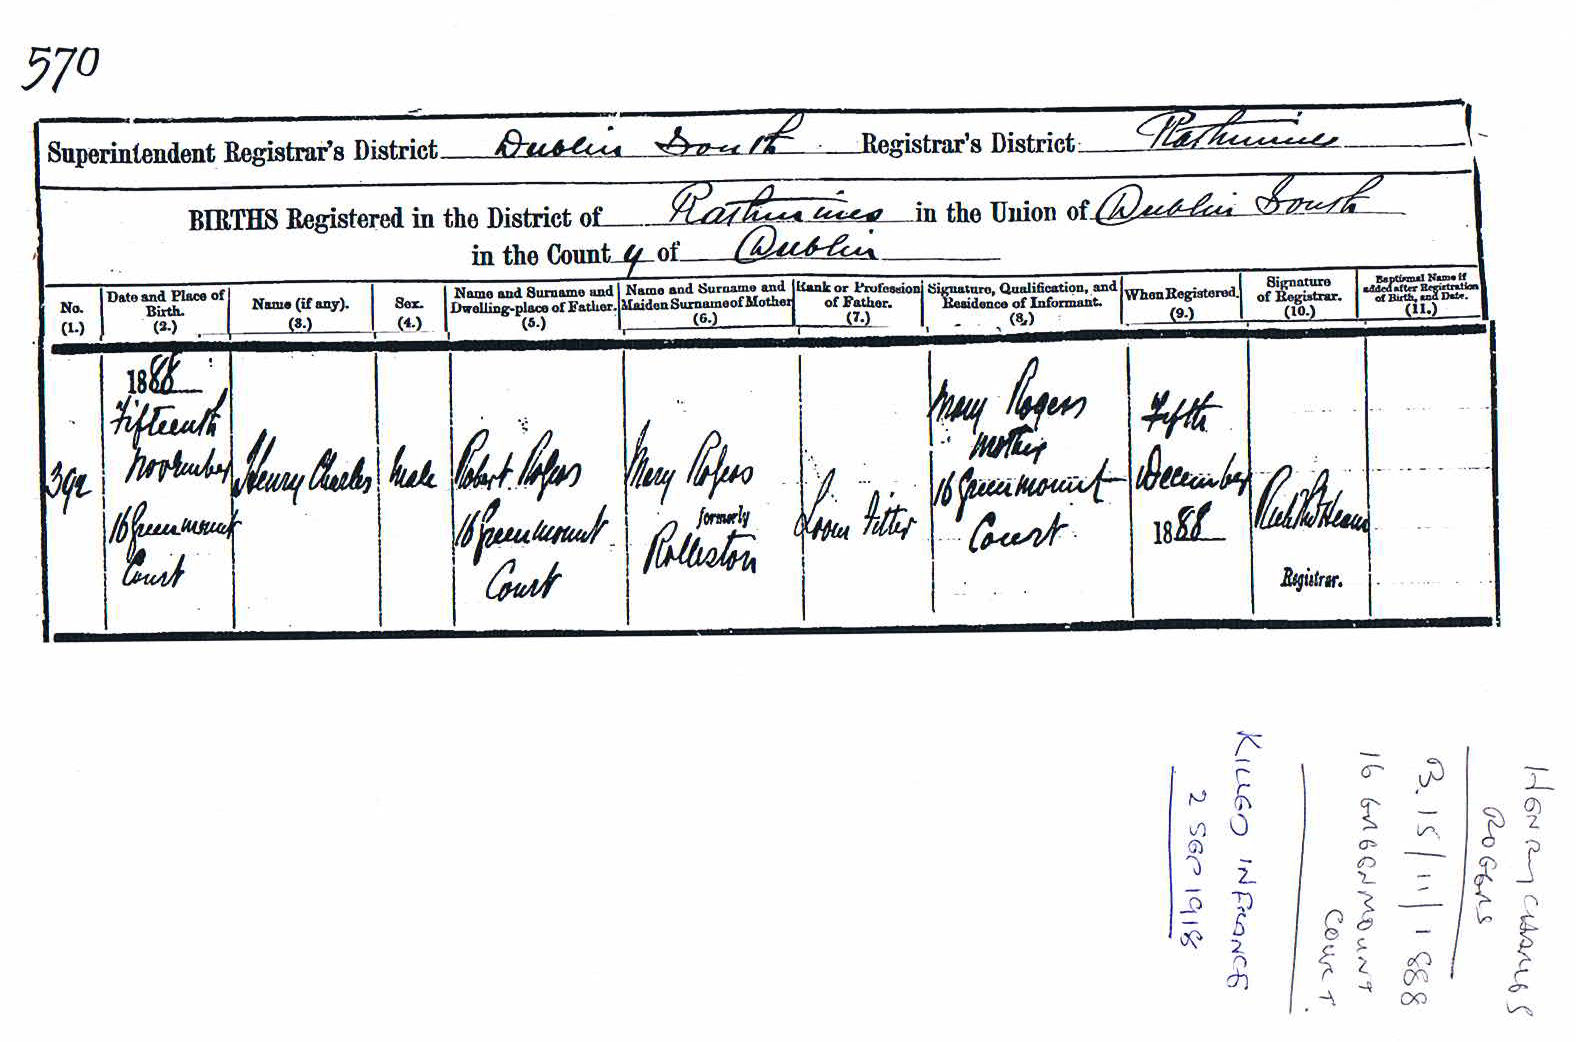 570
Superintendent Registrar's District Dublin South Registrar's District Rathmines
BIRTHS Registered in the District of Rathmines in the Union of Dublin South
in the County of Dublin
No. (1.)
Date and Place of Birth. (2.)
Name (if any). (3.)
Sex. (4.)
Name and Surname and Dwelling-place of Father. (5.)
Name and Surname and Maiden Surname of Mother (6.)
Rank or Profession of Father. (7.)
Signature, Qualification, and Residence of Informant. (8.)
When Registered. (9.)
Signature of Registrar. (10.)
Baptismal Name if added after Registration of Birth, and Date. (11.)
392
1888
Fifteenth
November
16 Greenmount
Court
Henry Charles
Male
Robert Rogers
16 Greenmount
Court
Mary Rogers
formerly
Rolleston
Loom Fitter
Mary Rogers
Mother
16 Greenmount
Court
Fifth
December
1888
Registrar.
HENRY CHARLES
ROGERS
B. 15/11/1888
16 GREENMOUNT
COURT.
KILLED IN FRANCE
2 SEP 1918